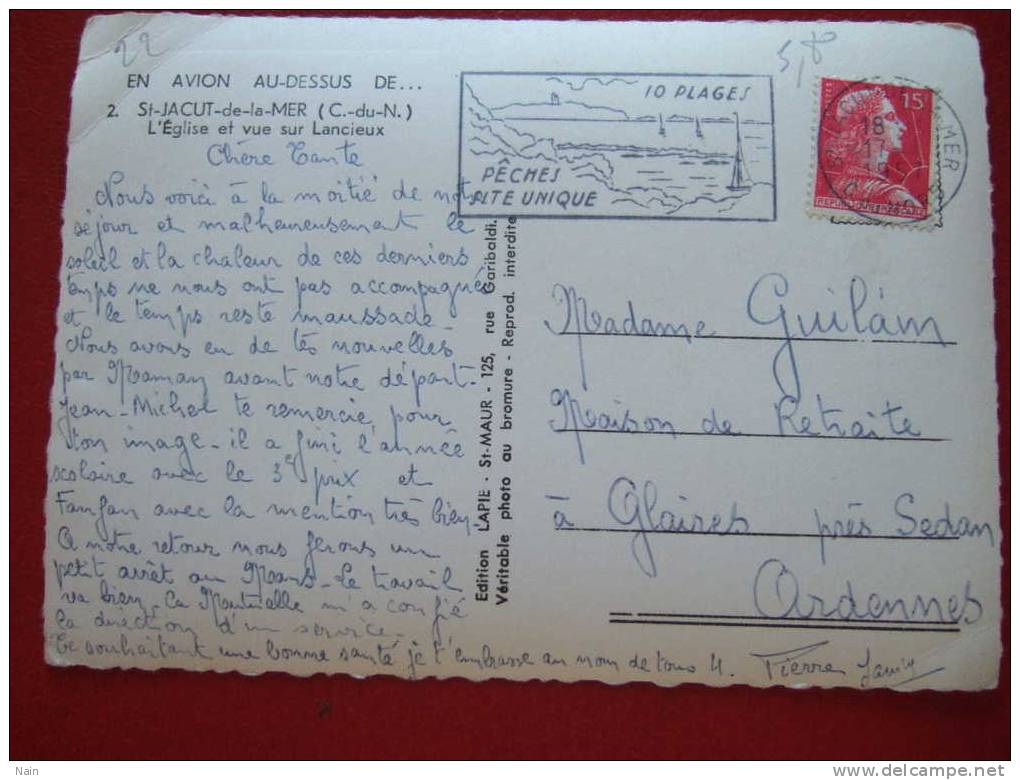 22
5,80
EN AVION AU-DESSUS DE...
2. St-JACUT-de-la-MER (C.-du-N.)
L'Église et vue sur Lancieux
10 PLAGES
PÊCHES
SITE UNIQUE
15
18
17
MER
REPUBLIQUE FRANÇAISE
Chère Tante
Nous voici à la moitié de not
séjour et malheureusement le
soleil et la chaleur de ces derniers
temps ne nous ont pas accompagné
et le temps reste maussade.
Nous avons eu de tes nouvelles
par Maman avant notre départ.
Jean-Michel te remercie, pour
ton image - il a fini l'année
scolaire avec le 3e prix et
Fanfan avec la mention très bien.
A notre retour nous ferons un
petit arrêt au Mans - Le travail
va bien. La Mutuelle m'a confié
la direction d'un service.
Te souhaitant une bonne santé je t'embrasse au nom de tous 4. Pierre
Edition LAPIE - St-MAUR - 125, rue Garibaldi.
Véritable photo au bromure - Reprod. interdite
Madame Guilain
Maison de Retraite
à Glaires près Sedan
Ardennes
Nain
www.delcampe.net